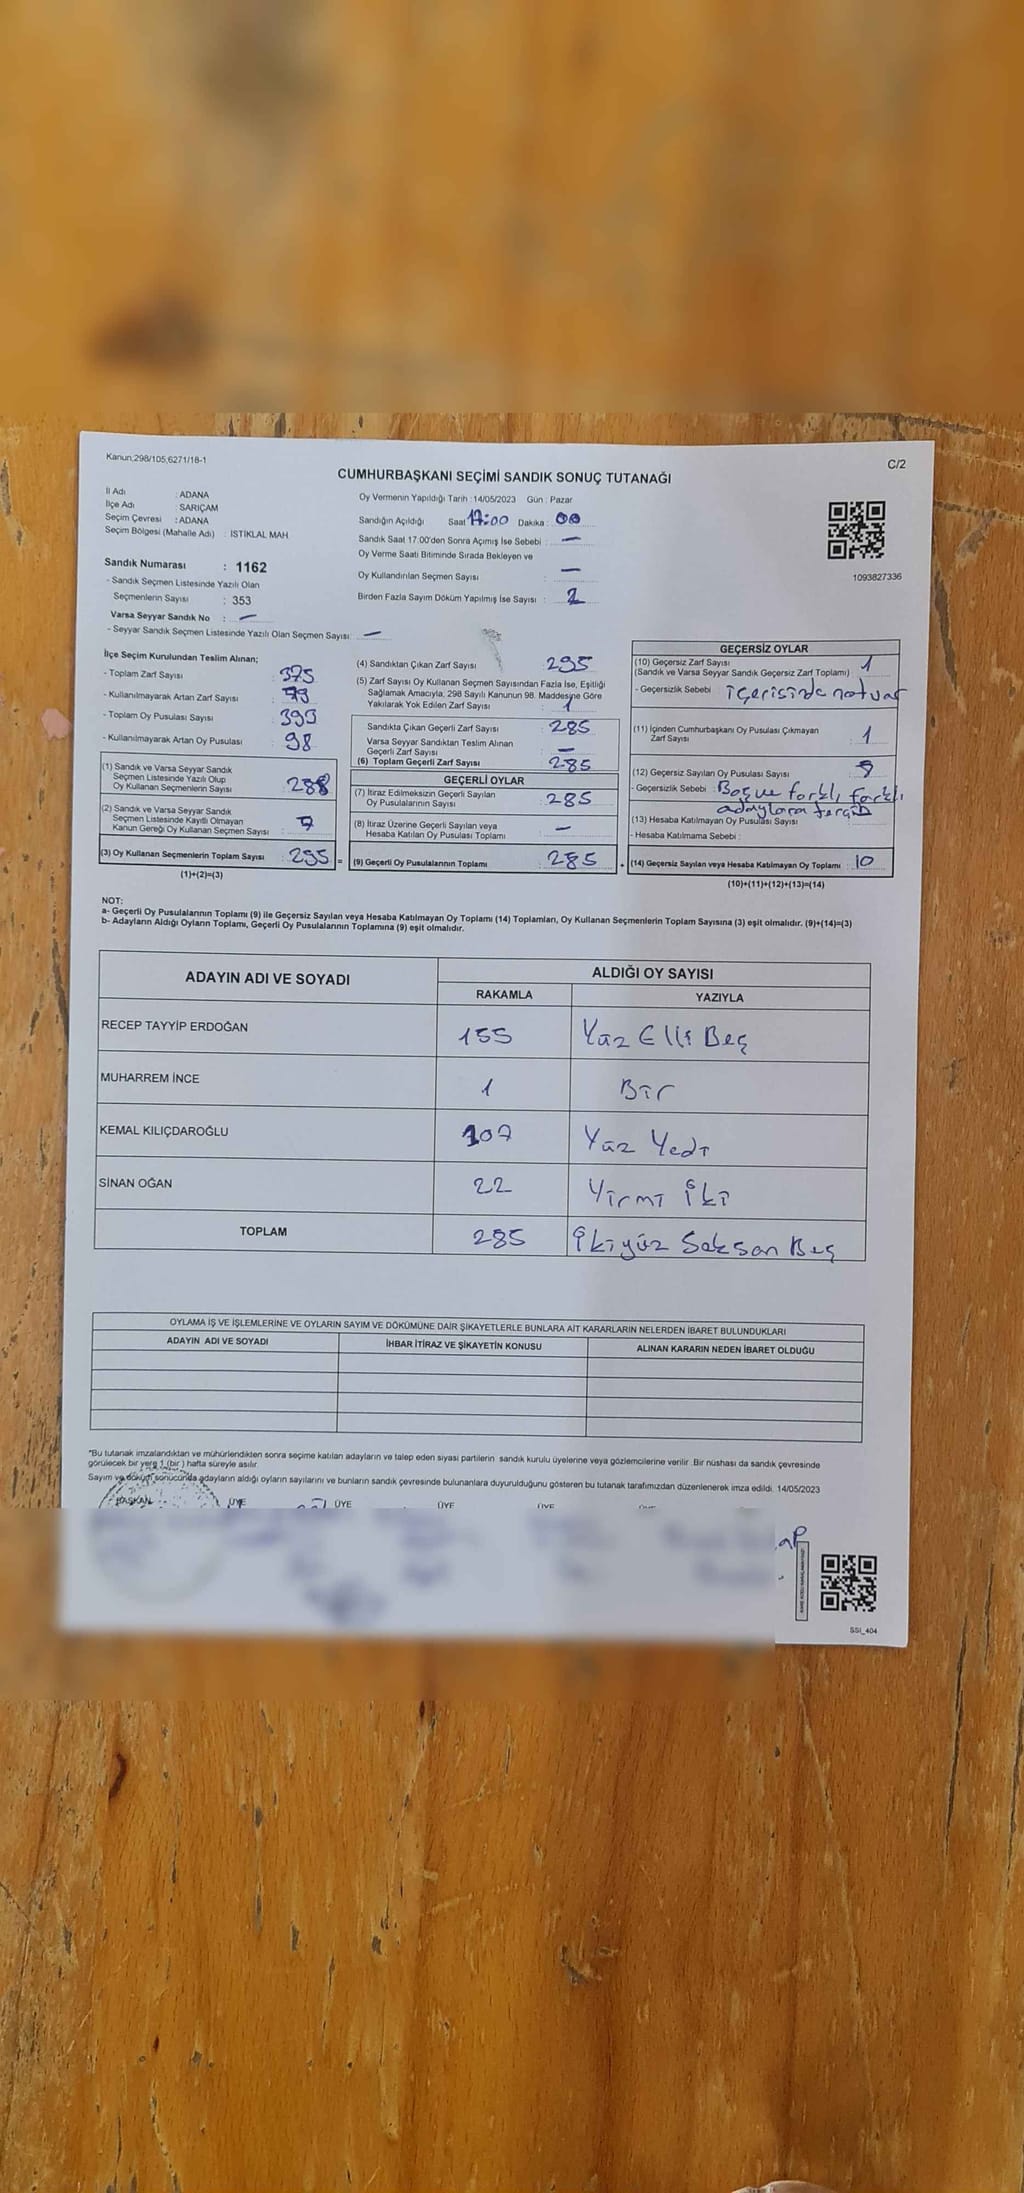 Kanun,298/105,6271/18-1
C/2
CUMHURBAŞKANI SEÇİMİ SANDIK SONUÇ TUTANAĞI
İl Adı : ADANA
İlçe Adı : SARIÇAM
Seçim Çevresi : ADANA
Seçim Bölgesi (Mahalle Adı) : ISTİKLAL MAH
Sandık Numarası : 1162
- Sandık Seçmen Listesinde Yazılı Olan
Seçmenlerin Sayısı : 353
Varsa Seyyar Sandık No : —
- Seyyar Sandık Seçmen Listesinde Yazılı Olan Seçmen Sayısı: —
Oy Vermenin Yapıldığı Tarih :14/05/2023 Gün : Pazar
Sandığın Açıldığı Saat 17:00 Dakika : 00
Sandık Saat 17.00'den Sonra Açımış İse Sebebi : —
Oy Verme Saati Bitiminde Sırada Bekleyen ve
Oy Kullandırılan Seçmen Sayısı : —
Birden Fazla Sayım Döküm Yapılmış İse Sayısı : 2
1093827336
İlçe Seçim Kurulundan Teslim Alınan;
- Toplam Zarf Sayısı : 375
- Kullanılmayarak Artan Zarf Sayısı : 79
- Toplam Oy Pusulası Sayısı : 393
- Kullanılmayarak Artan Oy Pusulası : 98
(1) Sandık ve Varsa Seyyar Sandık
Seçmen Listesinde Yazılı Olup
Oy Kullanan Seçmenlerin Sayısı : 288
(2) Sandık ve Varsa Seyyar Sandık
Seçmen Listesinde Kayıtlı Olmayan
Kanun Gereği Oy Kullanan Seçmen Sayısı : 7
(3) Oy Kullanan Seçmenlerin Toplam Sayısı : 295 =
(1)+(2)=(3)
(4) Sandıktan Çıkan Zarf Sayısı : 295
(5) Zarf Sayısı Oy Kullanan Seçmen Sayısından Fazla İse, Eşitliği
Sağlamak Amacıyla, 298 Sayılı Kanunun 98. Maddesine Göre
Yakılarak Yok Edilen Zarf Sayısı : 1
Sandıkta Çıkan Geçerli Zarf Sayısı : 285
Varsa Seyyar Sandıktan Teslim Alınan
Geçerli Zarf Sayısı : —
(6) Toplam Geçerli Zarf Sayısı : 285
GEÇERLİ OYLAR
(7) İtiraz Edilmeksizin Geçerli Sayılan
Oy Pusulalarının Sayısı : 285
(8) İtiraz Üzerine Geçerli Sayılan veya
Hesaba Katılan Oy Pusulası Toplamı : —
(9) Geçerli Oy Pusulalarının Toplamı : 285 +
GEÇERSİZ OYLAR
(10) Geçersiz Zarf Sayısı
(Sandık ve Varsa Seyyar Sandık Geçersiz Zarf Toplamı) : 1
- Geçersizlik Sebebi : içerisinde not var
(11) İçinden Cumhurbaşkanı Oy Pusulası Çıkmayan
Zarf Sayısı : 1
(12) Geçersiz Sayılan Oy Pusulası Sayısı :
- Geçersizlik Sebebi : Boş ve farklı farklı
adaylara tercih
(13) Hesaba Katılmayan Oy Pusulası Sayısı
- Hesaba Katılmama Sebebi :
(14) Geçersiz Sayılan veya Hesaba Katılmayan Oy Toplamı : 10
(10)+(11)+(12)+(13)=(14)
NOT:
a- Geçerli Oy Pusulalarının Toplamı (9) ile Geçersiz Sayılan veya Hesaba Katılmayan Oy Toplamı (14) Toplamları, Oy Kullanan Seçmenlerin Toplam Sayısına (3) eşit olmalıdır. (9)+(14)=(3)
b- Adayların Aldığı Oyların Toplamı, Geçerli Oy Pusulalarının Toplamına (9) eşit olmalıdır.
ADAYIN ADI VE SOYADI ALDIĞI OY SAYISI
RAKAMLA YAZIYLA
RECEP TAYYİP ERDOĞAN 155 Yüz Elli Beş
MUHARREM İNCE 1 Bir
KEMAL KILIÇDAROĞLU 107 Yüz Yedi
SİNAN OĞAN 22 Yirmi İki
TOPLAM 285 İkiyüz Seksan Beş
OYLAMA İŞ VE İŞLEMLERİNE VE OYLARIN SAYIM VE DÖKÜMÜNE DAİR ŞİKAYETLERLE BUNLARA AİT KARARLARIN NELERDEN İBARET BULUNDUKLARI
ADAYIN ADI VE SOYADI İHBAR İTİRAZ VE ŞİKAYETİN KONUSU ALINAN KARARIN NEDEN İBARET OLDUĞU
*Bu tutanak imzalandıktan ve mühürlendikten sonra seçime katılan adayların ve talep eden siyasi partilerin sandık kurulu üyelerine veya gözlemcilerine verilir. Bir nüshası da sandık çevresinde
görülecek bir yere 1 (bir ) hafta süreyle asılır.
Sayım ve döküm sonucunda adayların aldığı oyların sayılarını ve bunların sandık çevresinde bulunanlara duyurulduğunu gösteren bu tutanak tarafımızdan düzenlenerek imza edildi. 14/05/2023
BAŞKAN ÜYE ÜYE ÜYE ÜYE
SSI_404